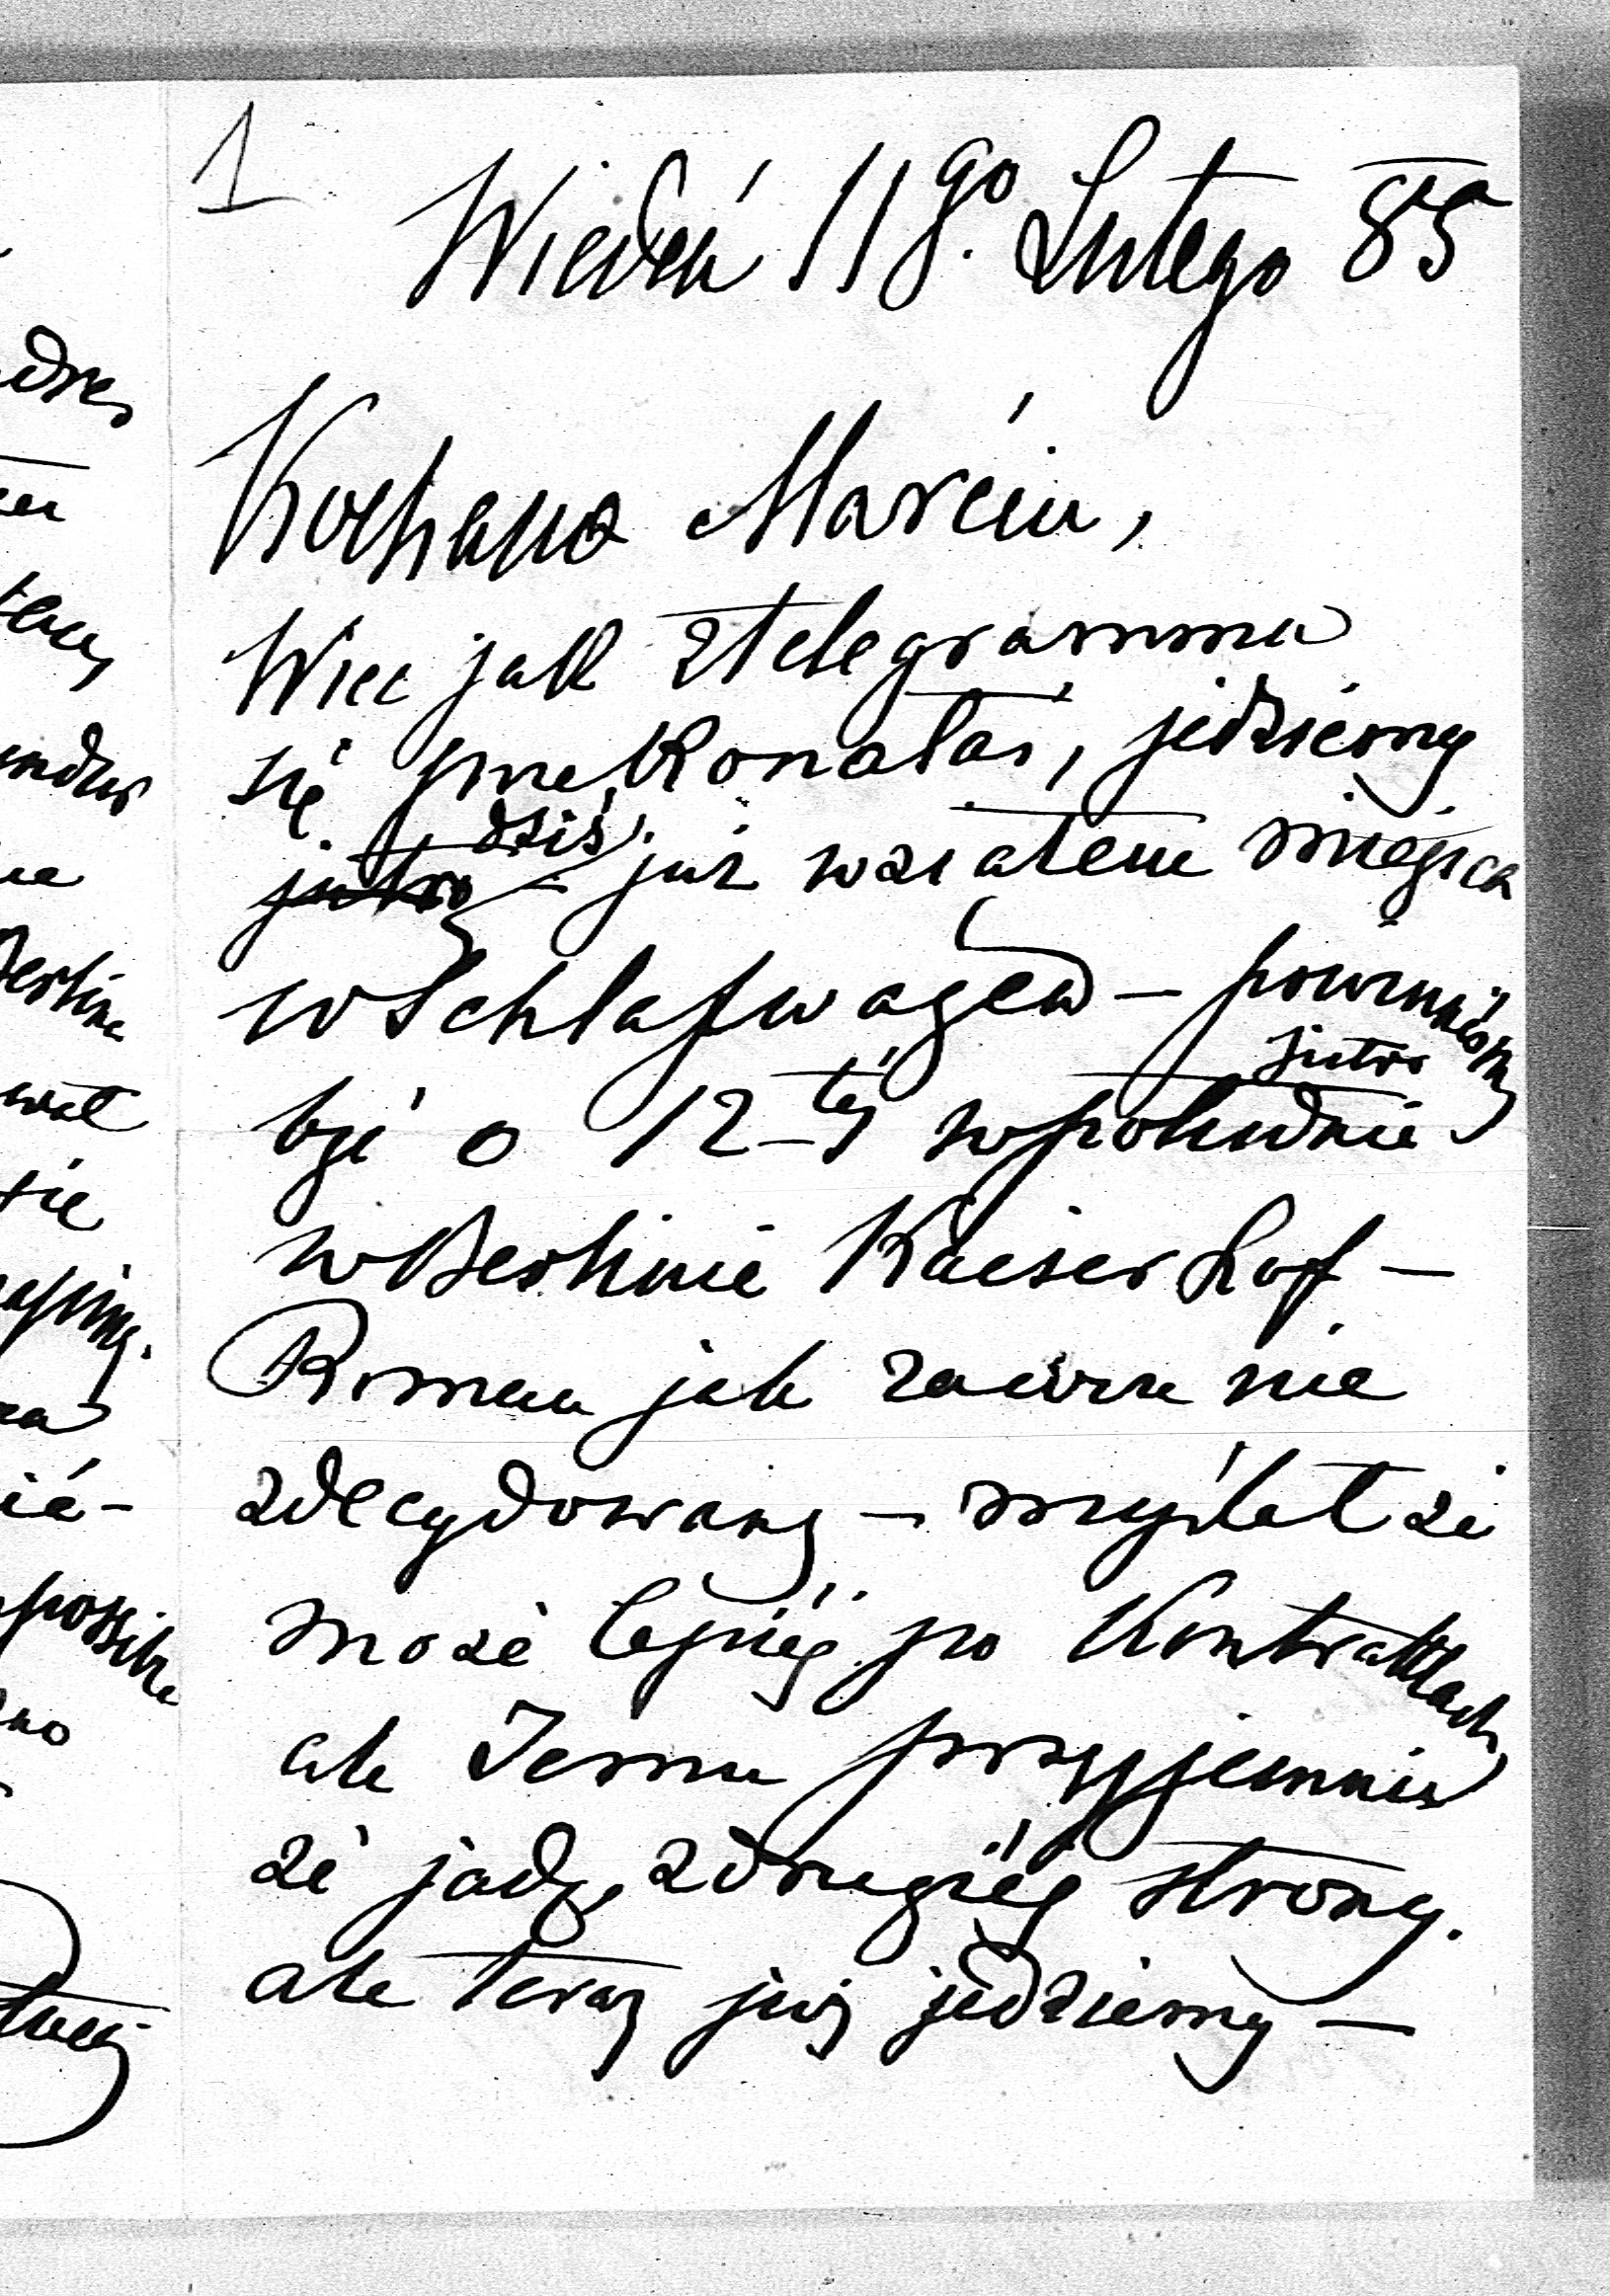 1
Wiedeń 11go. Lutego 85
Kochana Marciu,
Więc jak z telegrammu
się przekonałaś, jedziemy
jutro dziś już wziąłem miejsca
w Schlafwagen – powinniśmy
być o 12-téj w południe jutro
w Berlinie Kaiserhof –
Roman jak zawsze nie
zdecydowany – myślał że
może lepiéj po Kontraktach
ale Jemu przyjemnie
że jadę, z drugiéj strony.
ale teraz już jedziemy –